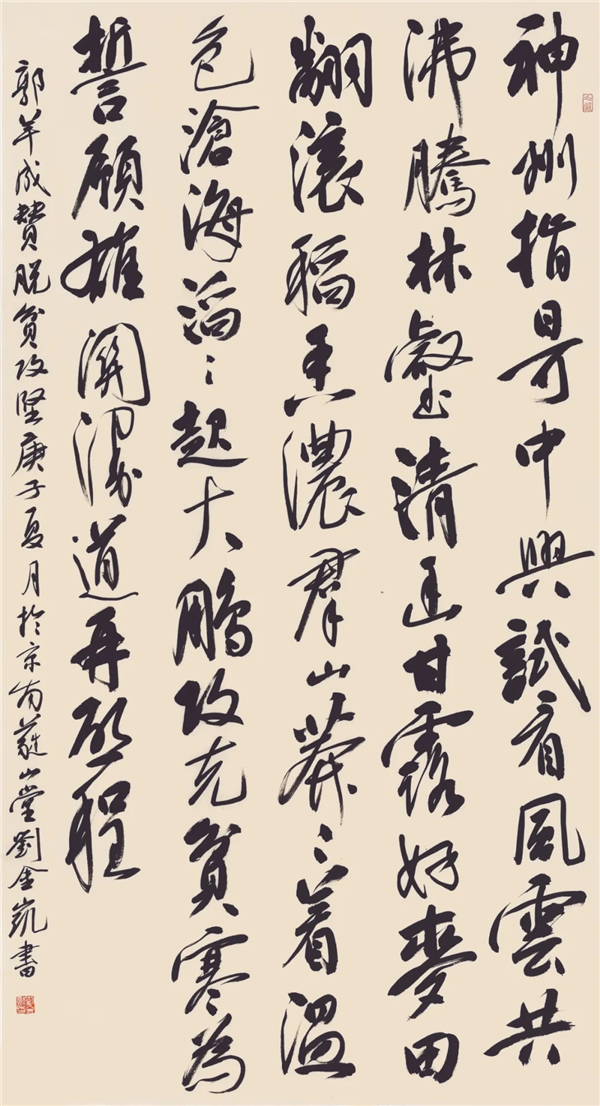 神州指日可中興試看風雲共
沸騰林壑清幽甘露好麥田
翻滾稻香濃群山莽々着温
色滄海滔々起大鵬攻克貧寒為
誓願雄關漫道再啟程
郭羊成贊脱貧攻堅庚子夏月於京南山堂劉金凱書